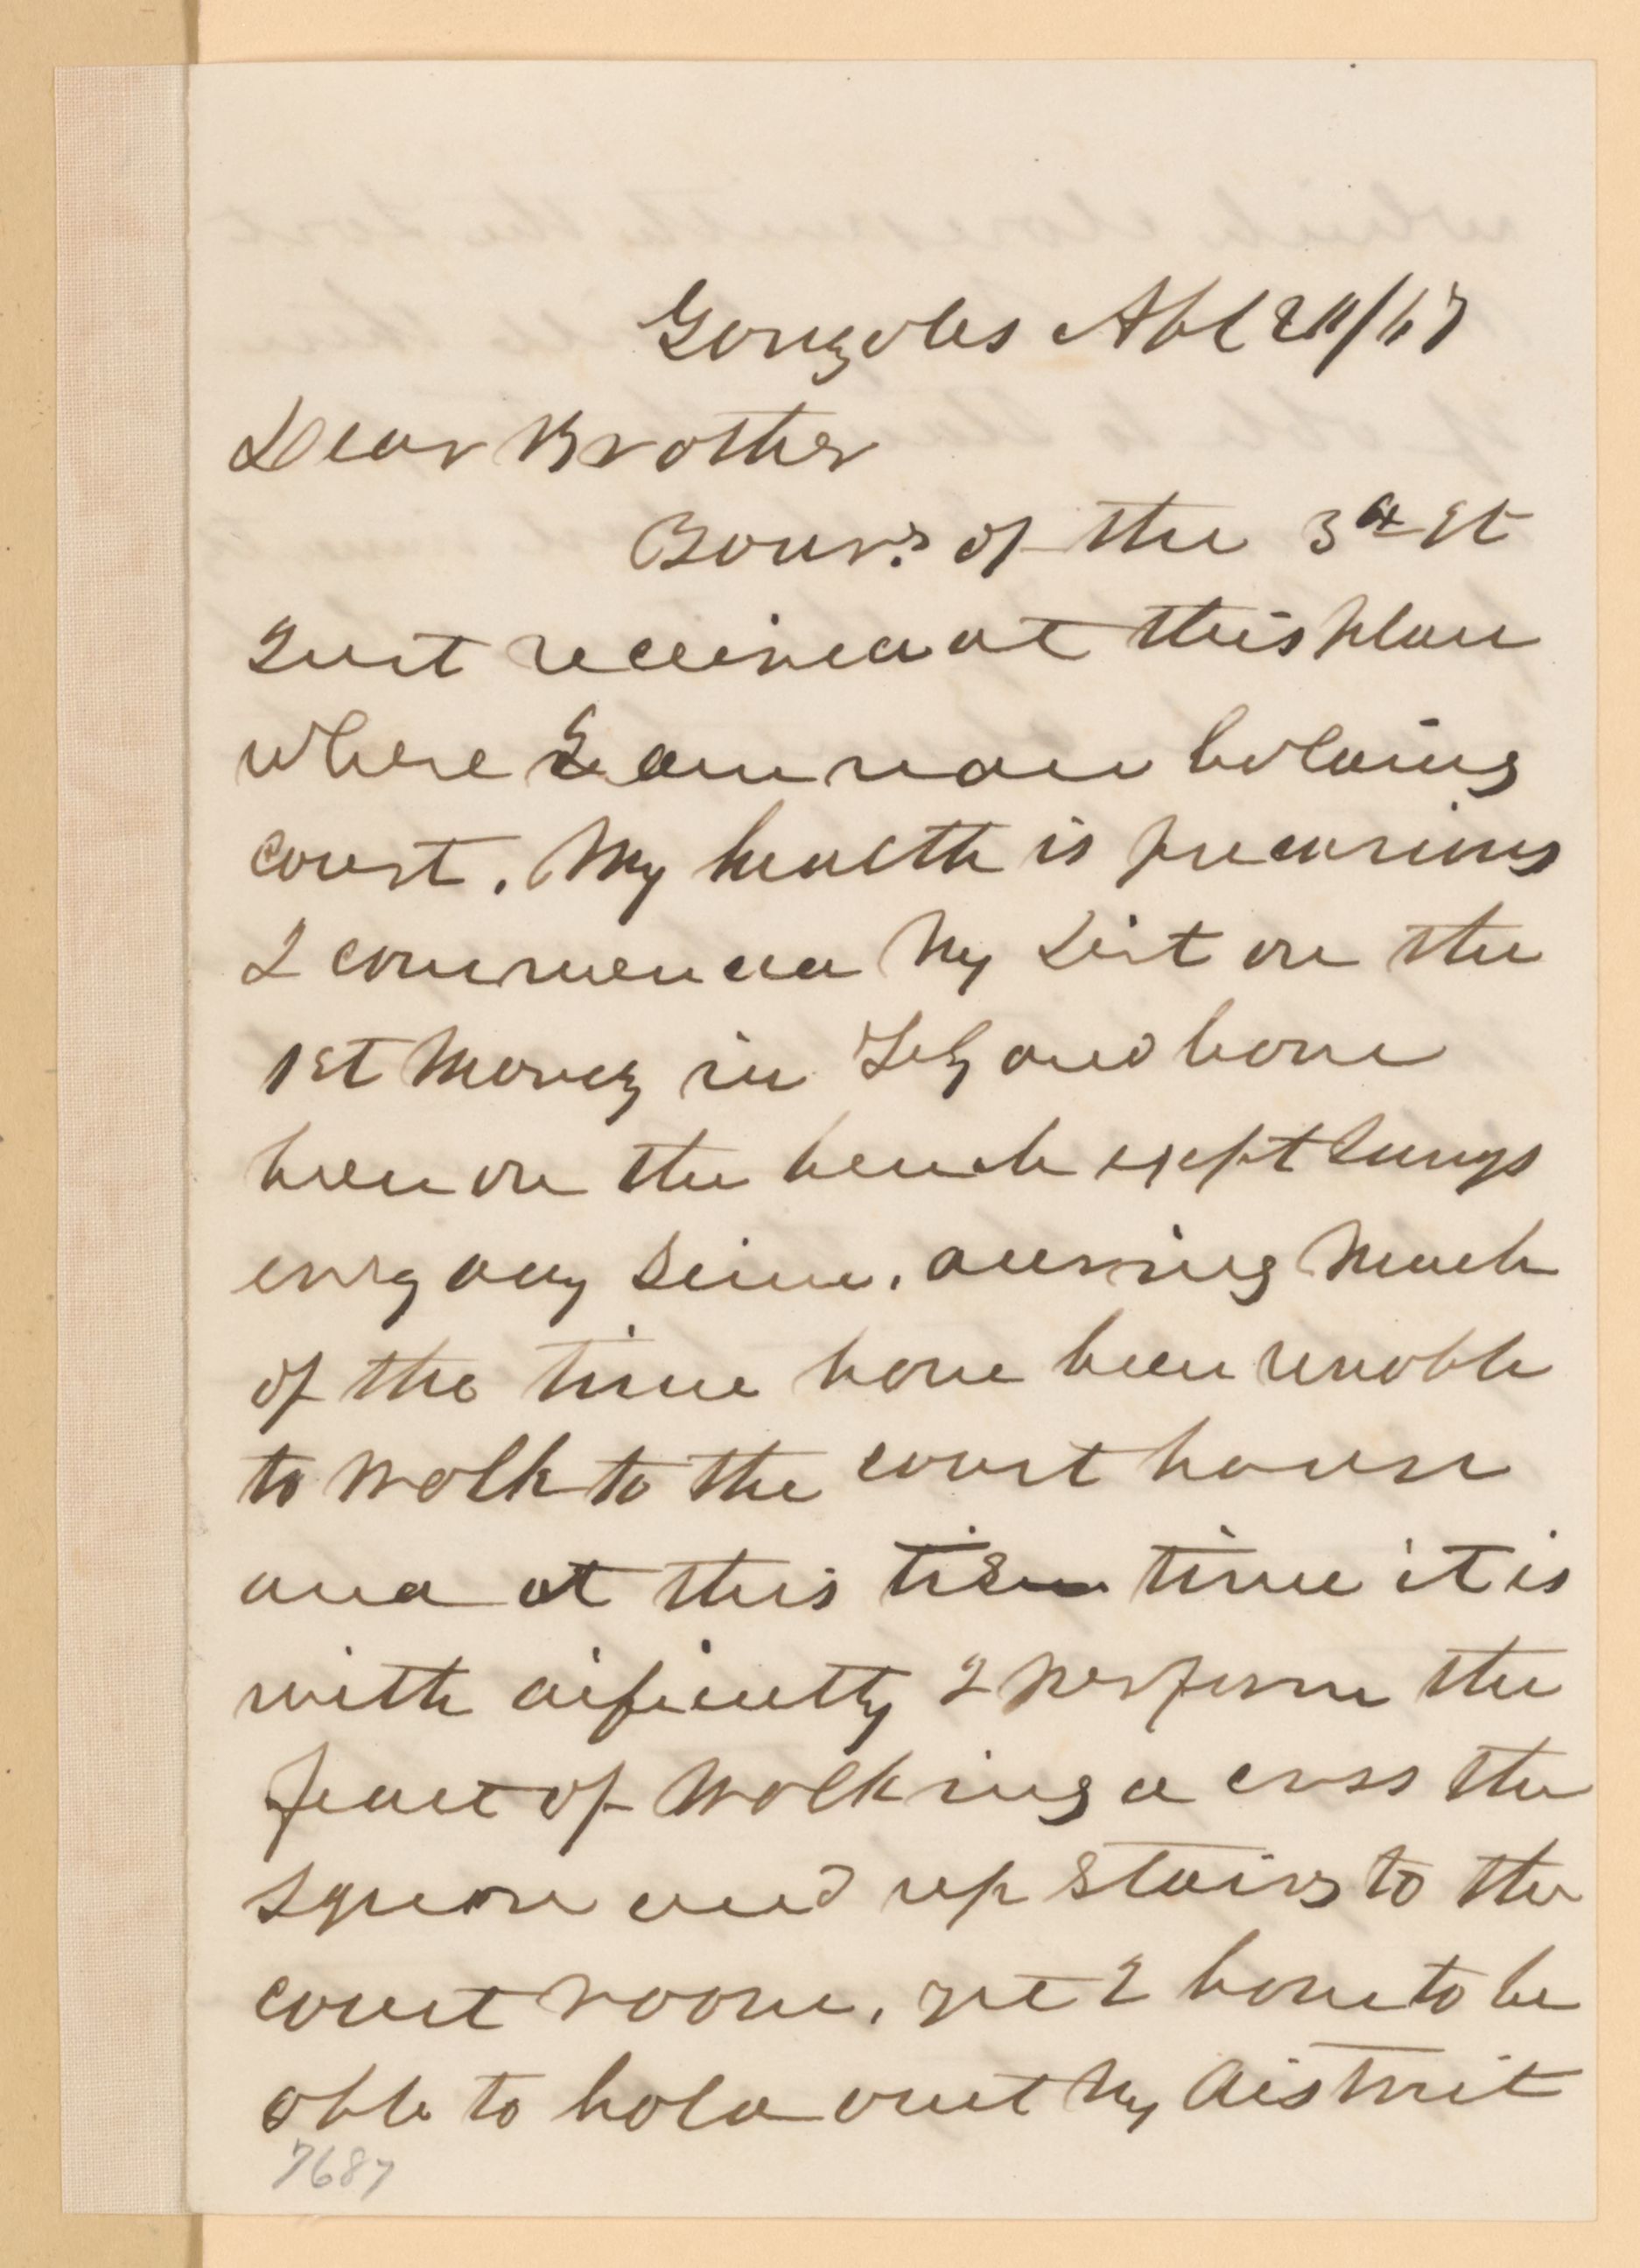 Gonzales Apl 20/67
Dear Brother
Yours of the 3d Ist
Just received at this place
where I am now holding
court. My health is precarious
I commenced my Dist on the
1st Monday in Feby and have
been on the bench except Sundays
every day since. during much
of the time have been unable
to walk to the court house
and at this time it is
with dificulty I perform the
feat of walking a cross the
square and up stairs to the
court room. yet I hope to be
able to hold out my district
7687